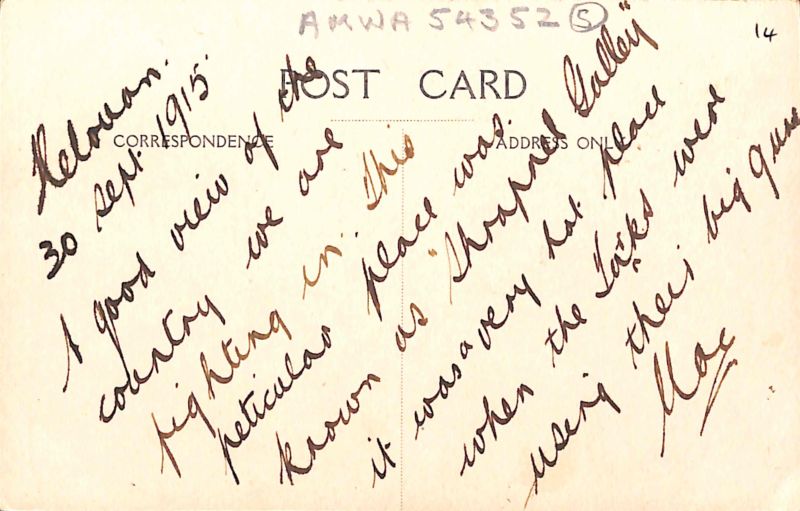 AMWA 54352 (5)
14
POST CARD
CORRESPONDENCE
ADDRESS ONLY
Helouan.
30 Sept 1915.
A good view of the
country we are
fighting in. This
peticular place was
known as "Shrapnel Galley"
it was a very hot place
when the Tarks were
using their big guns
Mac